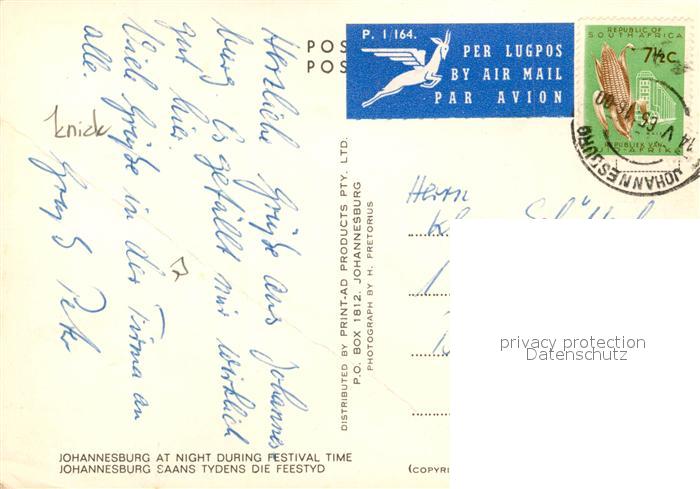 Herzliche Grüße aus Johannes-
burg. Es gefällt mir wirklich
gut hier.
Viele Grüße in der Firma an
alle.
Peter
knick
POS
POS
P. 1/164.
PER LUGPOS
BY AIR MAIL
PAR AVION
REPUBLIC OF
SOUTH AFRICA
7½c
REPUBLIEK VAN
SUID-AFRIKA
JOHANNESBURG
14 V 65
Herrn
DISTRIBUTED BY PRINT-AD PRODUCTS PTY. LTD.
P.O. BOX 1812. JOHANNESBURG
PHOTOGRAPH BY H. PRETORIUS
privacy protection
Datenschutz
JOHANNESBURG AT NIGHT DURING FESTIVAL TIME
JOHANNESBURG SAANS TYDENS DIE FEESTYD
(COPYRI